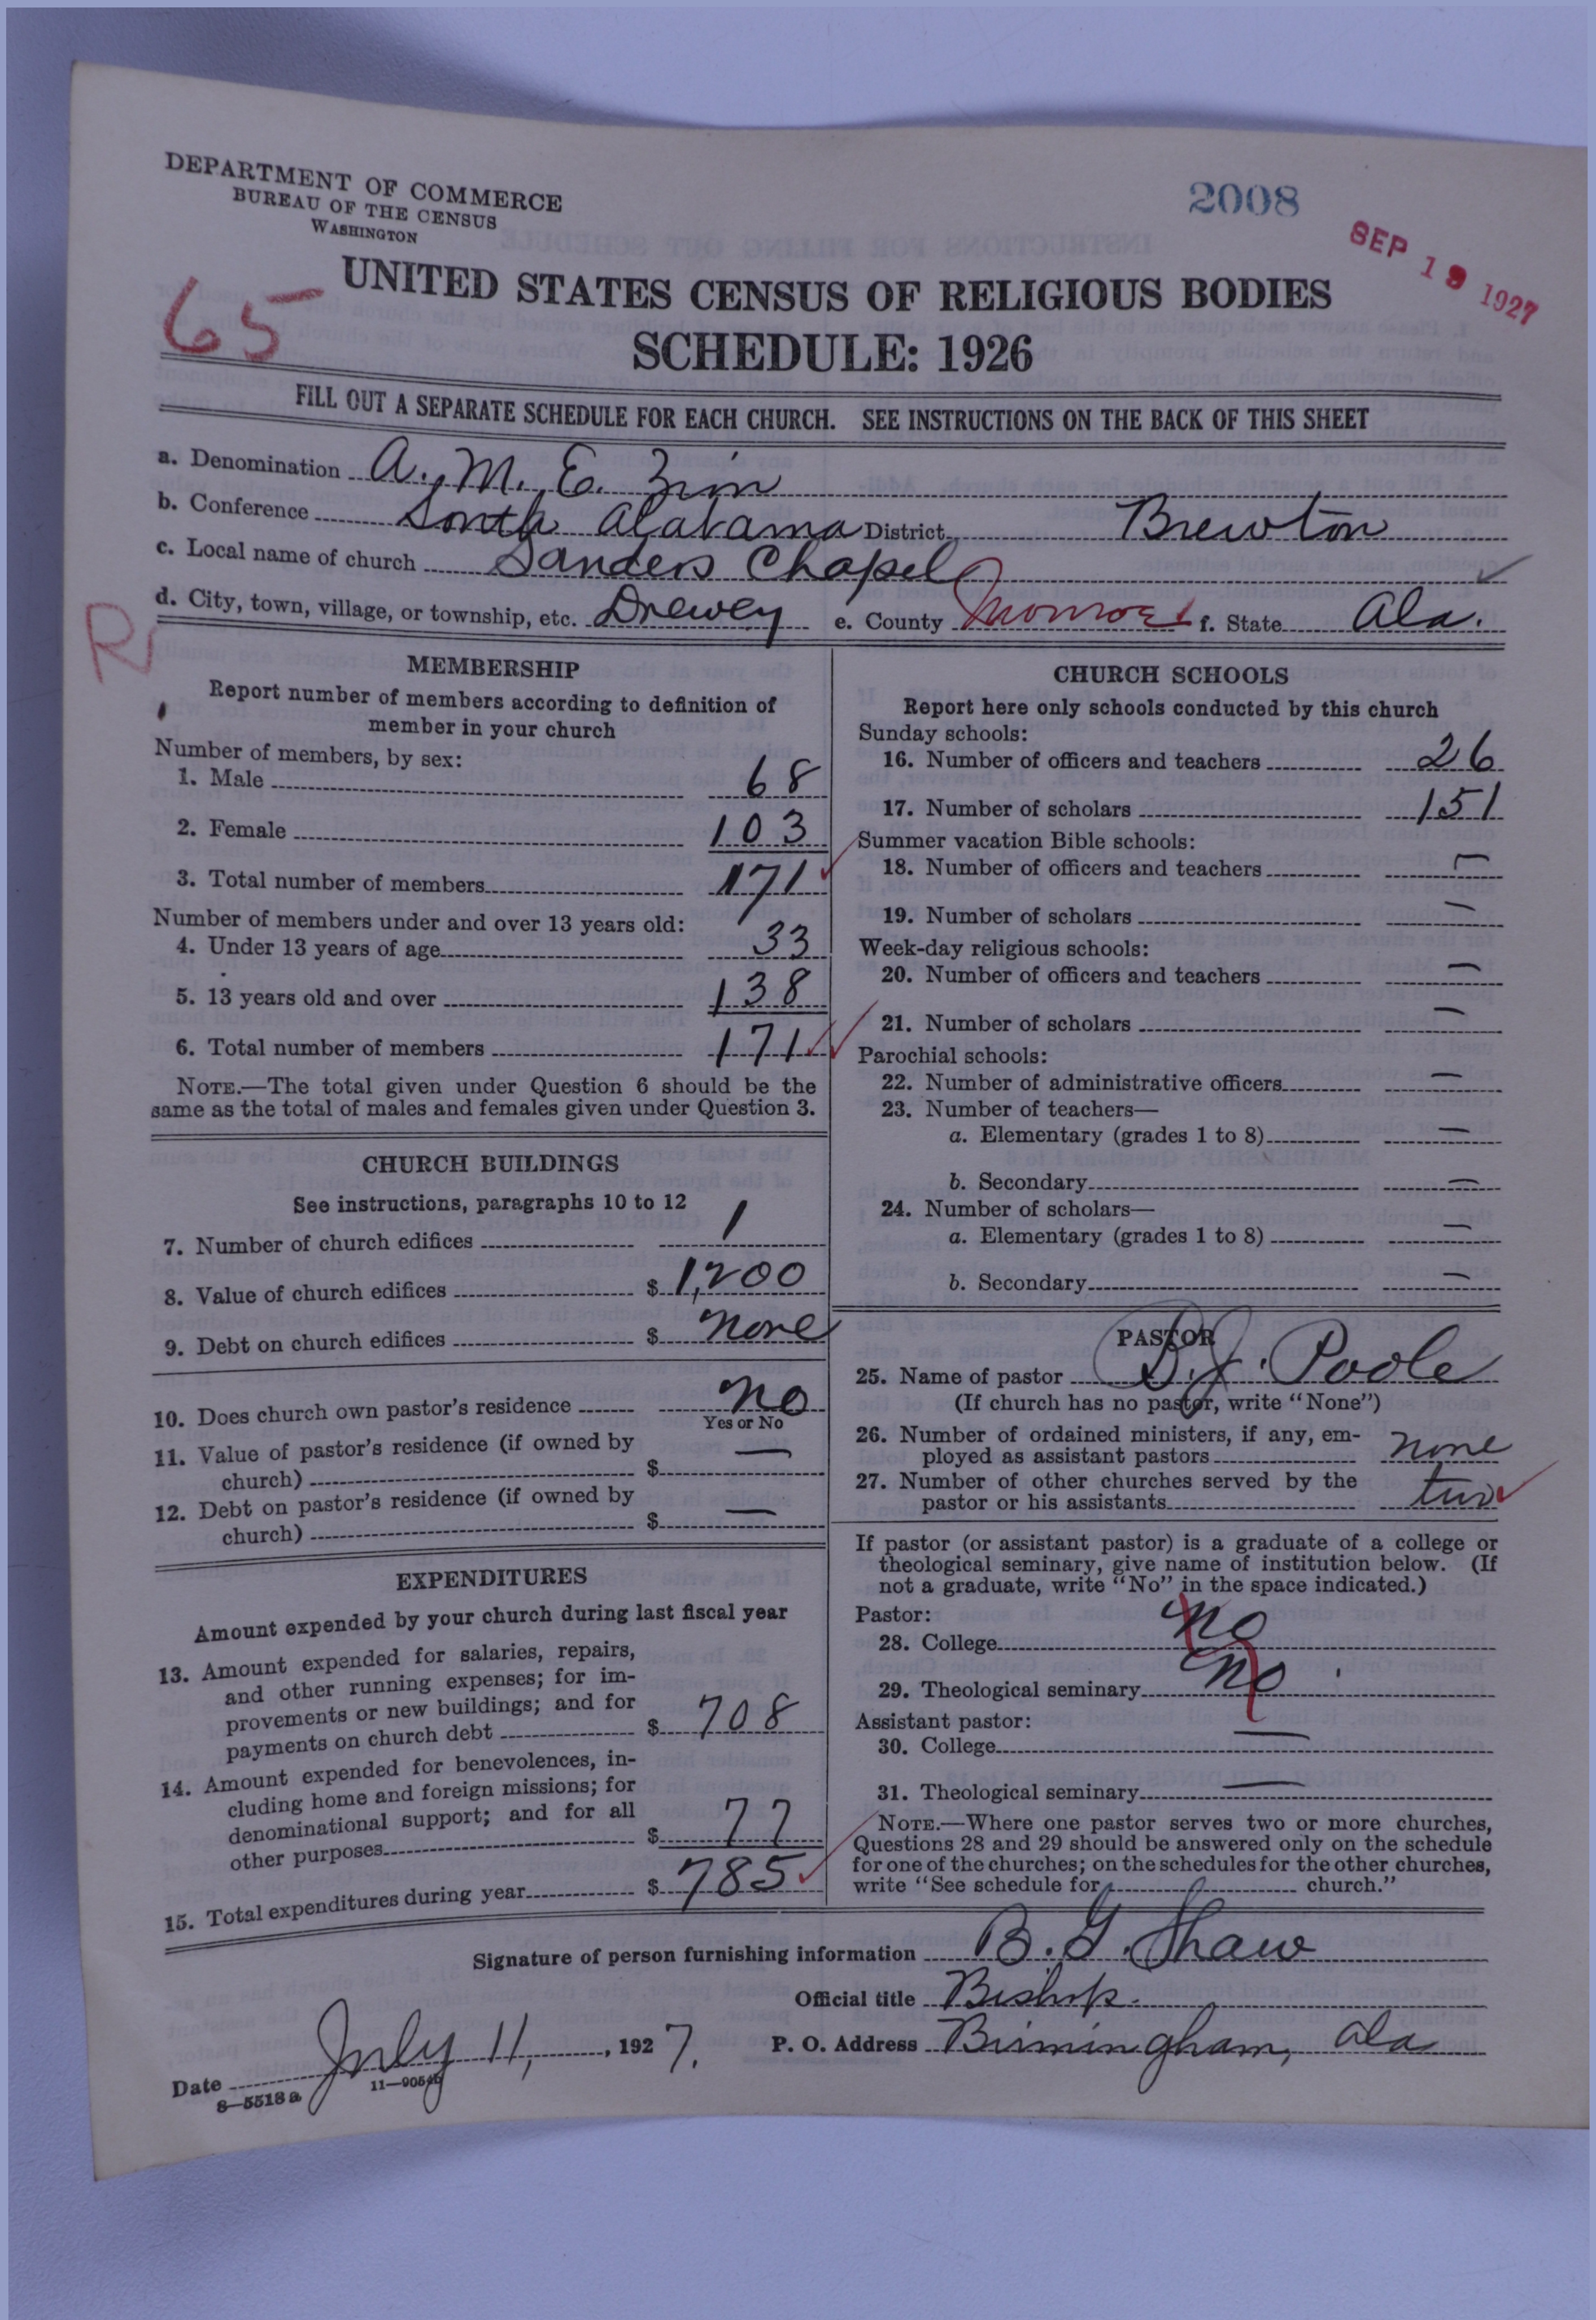 DEPARTMENT OF COMMERCE
BUREAU OF THE CENSUS
WASHINGTON
2008
SEP 19 1927
65
UNITED STATES CENSUS OF RELIGIOUS BODIES
SCHEDULE: 1926
FILL OUT A SEPARATE SCHEDULE FOR EACH CHURCH. SEE INSTRUCTIONS ON THE BACK OF THIS SHEET
a. Denomination A. M. E. Zion
b. Conference South Alabama District Brewton
c. Local name of church Sanders Chapel
d. City, town, village, or township, etc. Drewey e. County Monroe f. State Ala.
R
MEMBERSHIP
Report number of members according to definition of
member in your church
Number of members, by sex:
1. Male 68
2. Female 103
3. Total number of members 171
Number of members under and over 13 years old:
4. Under 13 years of age 33
5. 13 years old and over 138
6. Total number of members 171
NOTE.—The total given under Question 6 should be the
same as the total of males and females given under Question 3.
CHURCH BUILDINGS
See instructions, paragraphs 10 to 12
7. Number of church edifices 1
8. Value of church edifices $ 1,200
9. Debt on church edifices $ none
10. Does church own pastor's residence no
Yes or No
11. Value of pastor's residence (if owned by
church) $ —
12. Debt on pastor's residence (if owned by
church) $ —
EXPENDITURES
Amount expended by your church during last fiscal year
13. Amount expended for salaries, repairs,
and other running expenses; for im-
provements or new buildings; and for
payments on church debt $ 708
14. Amount expended for benevolences, in-
cluding home and foreign missions; for
denominational support; and for all
other purposes $ 77
15. Total expenditures during year $ 785
CHURCH SCHOOLS
Report here only schools conducted by this church
Sunday schools:
16. Number of officers and teachers 26
17. Number of scholars 151
Summer vacation Bible schools:
18. Number of officers and teachers —
19. Number of scholars —
Week-day religious schools:
20. Number of officers and teachers —
21. Number of scholars —
Parochial schools:
22. Number of administrative officers —
23. Number of teachers—
a. Elementary (grades 1 to 8) —
b. Secondary —
24. Number of scholars—
a. Elementary (grades 1 to 8) —
b. Secondary —
PASTOR
25. Name of pastor D. J. Poole
(If church has no pastor, write "None")
26. Number of ordained ministers, if any, em-
ployed as assistant pastors none
27. Number of other churches served by the
pastor or his assistants two
If pastor (or assistant pastor) is a graduate of a college or
theological seminary, give name of institution below. (If
not a graduate, write "No" in the space indicated.)
Pastor:
28. College no
29. Theological seminary no
Assistant pastor:
30. College —
31. Theological seminary —
NOTE.—Where one pastor serves two or more churches,
Questions 28 and 29 should be answered only on the schedule
for one of the churches; on the schedules for the other churches,
write "See schedule for church."
Signature of person furnishing information B. G. Shaw
Official title Bishop.
Date July 11, 1927. P. O. Address Birmingham, Ala
8—5518a 11—9054b